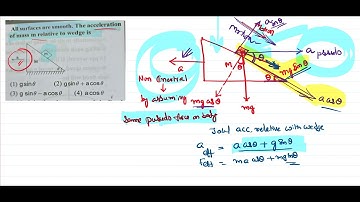 All surfaces are smooth. The acceleration
of mass m relative to wedge is
(1) g sinθ (2) g sinθ + a cosθ
(3) g sinθ – a cosθ (4) a cosθ
a
Non Inertial
by assuming
some pseudo-force on body
mg cosθ
mg
M
θ
a pseudo
mg sinθ
a cosθ
Total acc. relative with wedge
a = a cosθ + g sinθ
= ma cosθ + mg sinθ